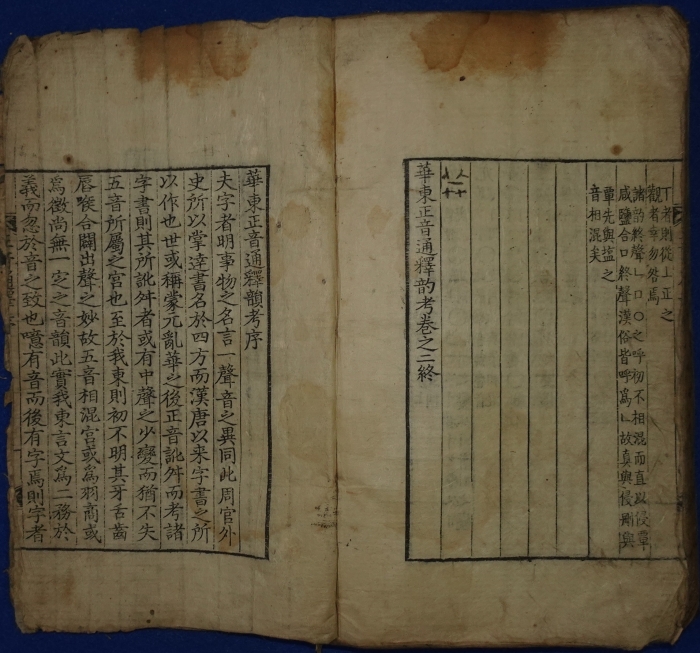 丁者則從丄正之
觀者幸勿咎焉
諸韵終聲ㄴㅁㅇ之呼初不相混而直以侵覃
咸鹽合口終聲漢俗皆呼爲ㄴ故真與侵刪與
覃先與塩之
音相混矣
華東正音通釋韵考卷之二終
華東正音通釋韻考序
夫字者明事物之名言一聲音之異同此周官外
史所以掌達書名於四方而漢唐以来字書之所
以作也世或稱蒙元亂華之後正音訛舛而考諸
字書則其所訛舛者或有中聲之少變而猶不失
五音所屬之宮也至於我東則初不明其牙舌齒
唇喉合闢出聲之妙故五音相混宮或爲羽商或
爲徵尚無一定之音韻此實我東言文爲二務於
義而忽於音之致也噫有音而後有字焉則字者